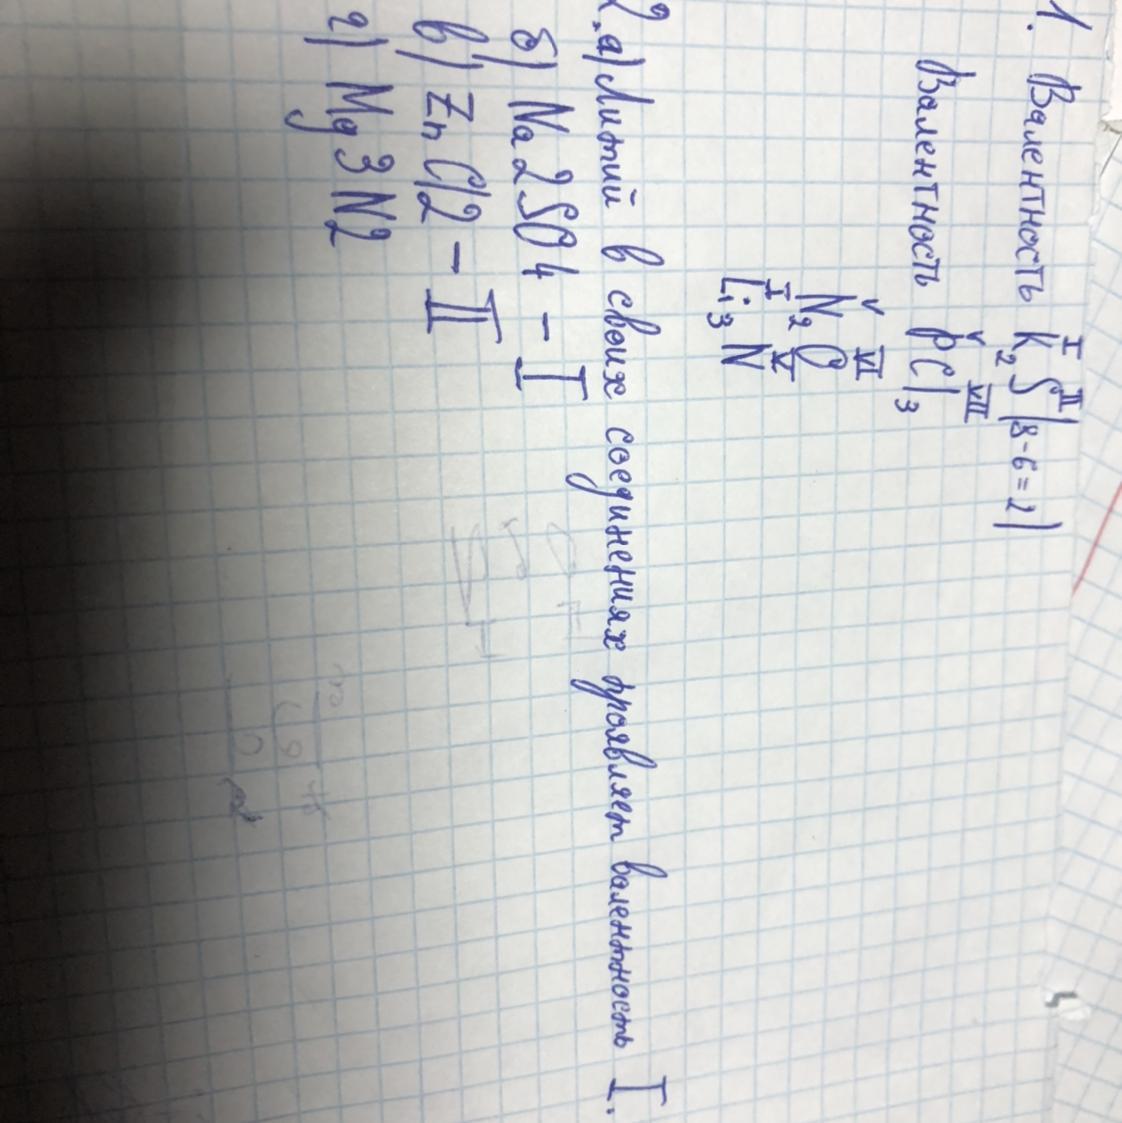 1. Валентность K₂S (8-6=2)
I II
Валентность PCl₃
V VII
N₂O
V VI
Li₃N
I V
2. а) Литий в своих соединениях проявляет валентность I.
б) Na2SO4 - I
в) ZnCl2 - II
г) Mg3N2